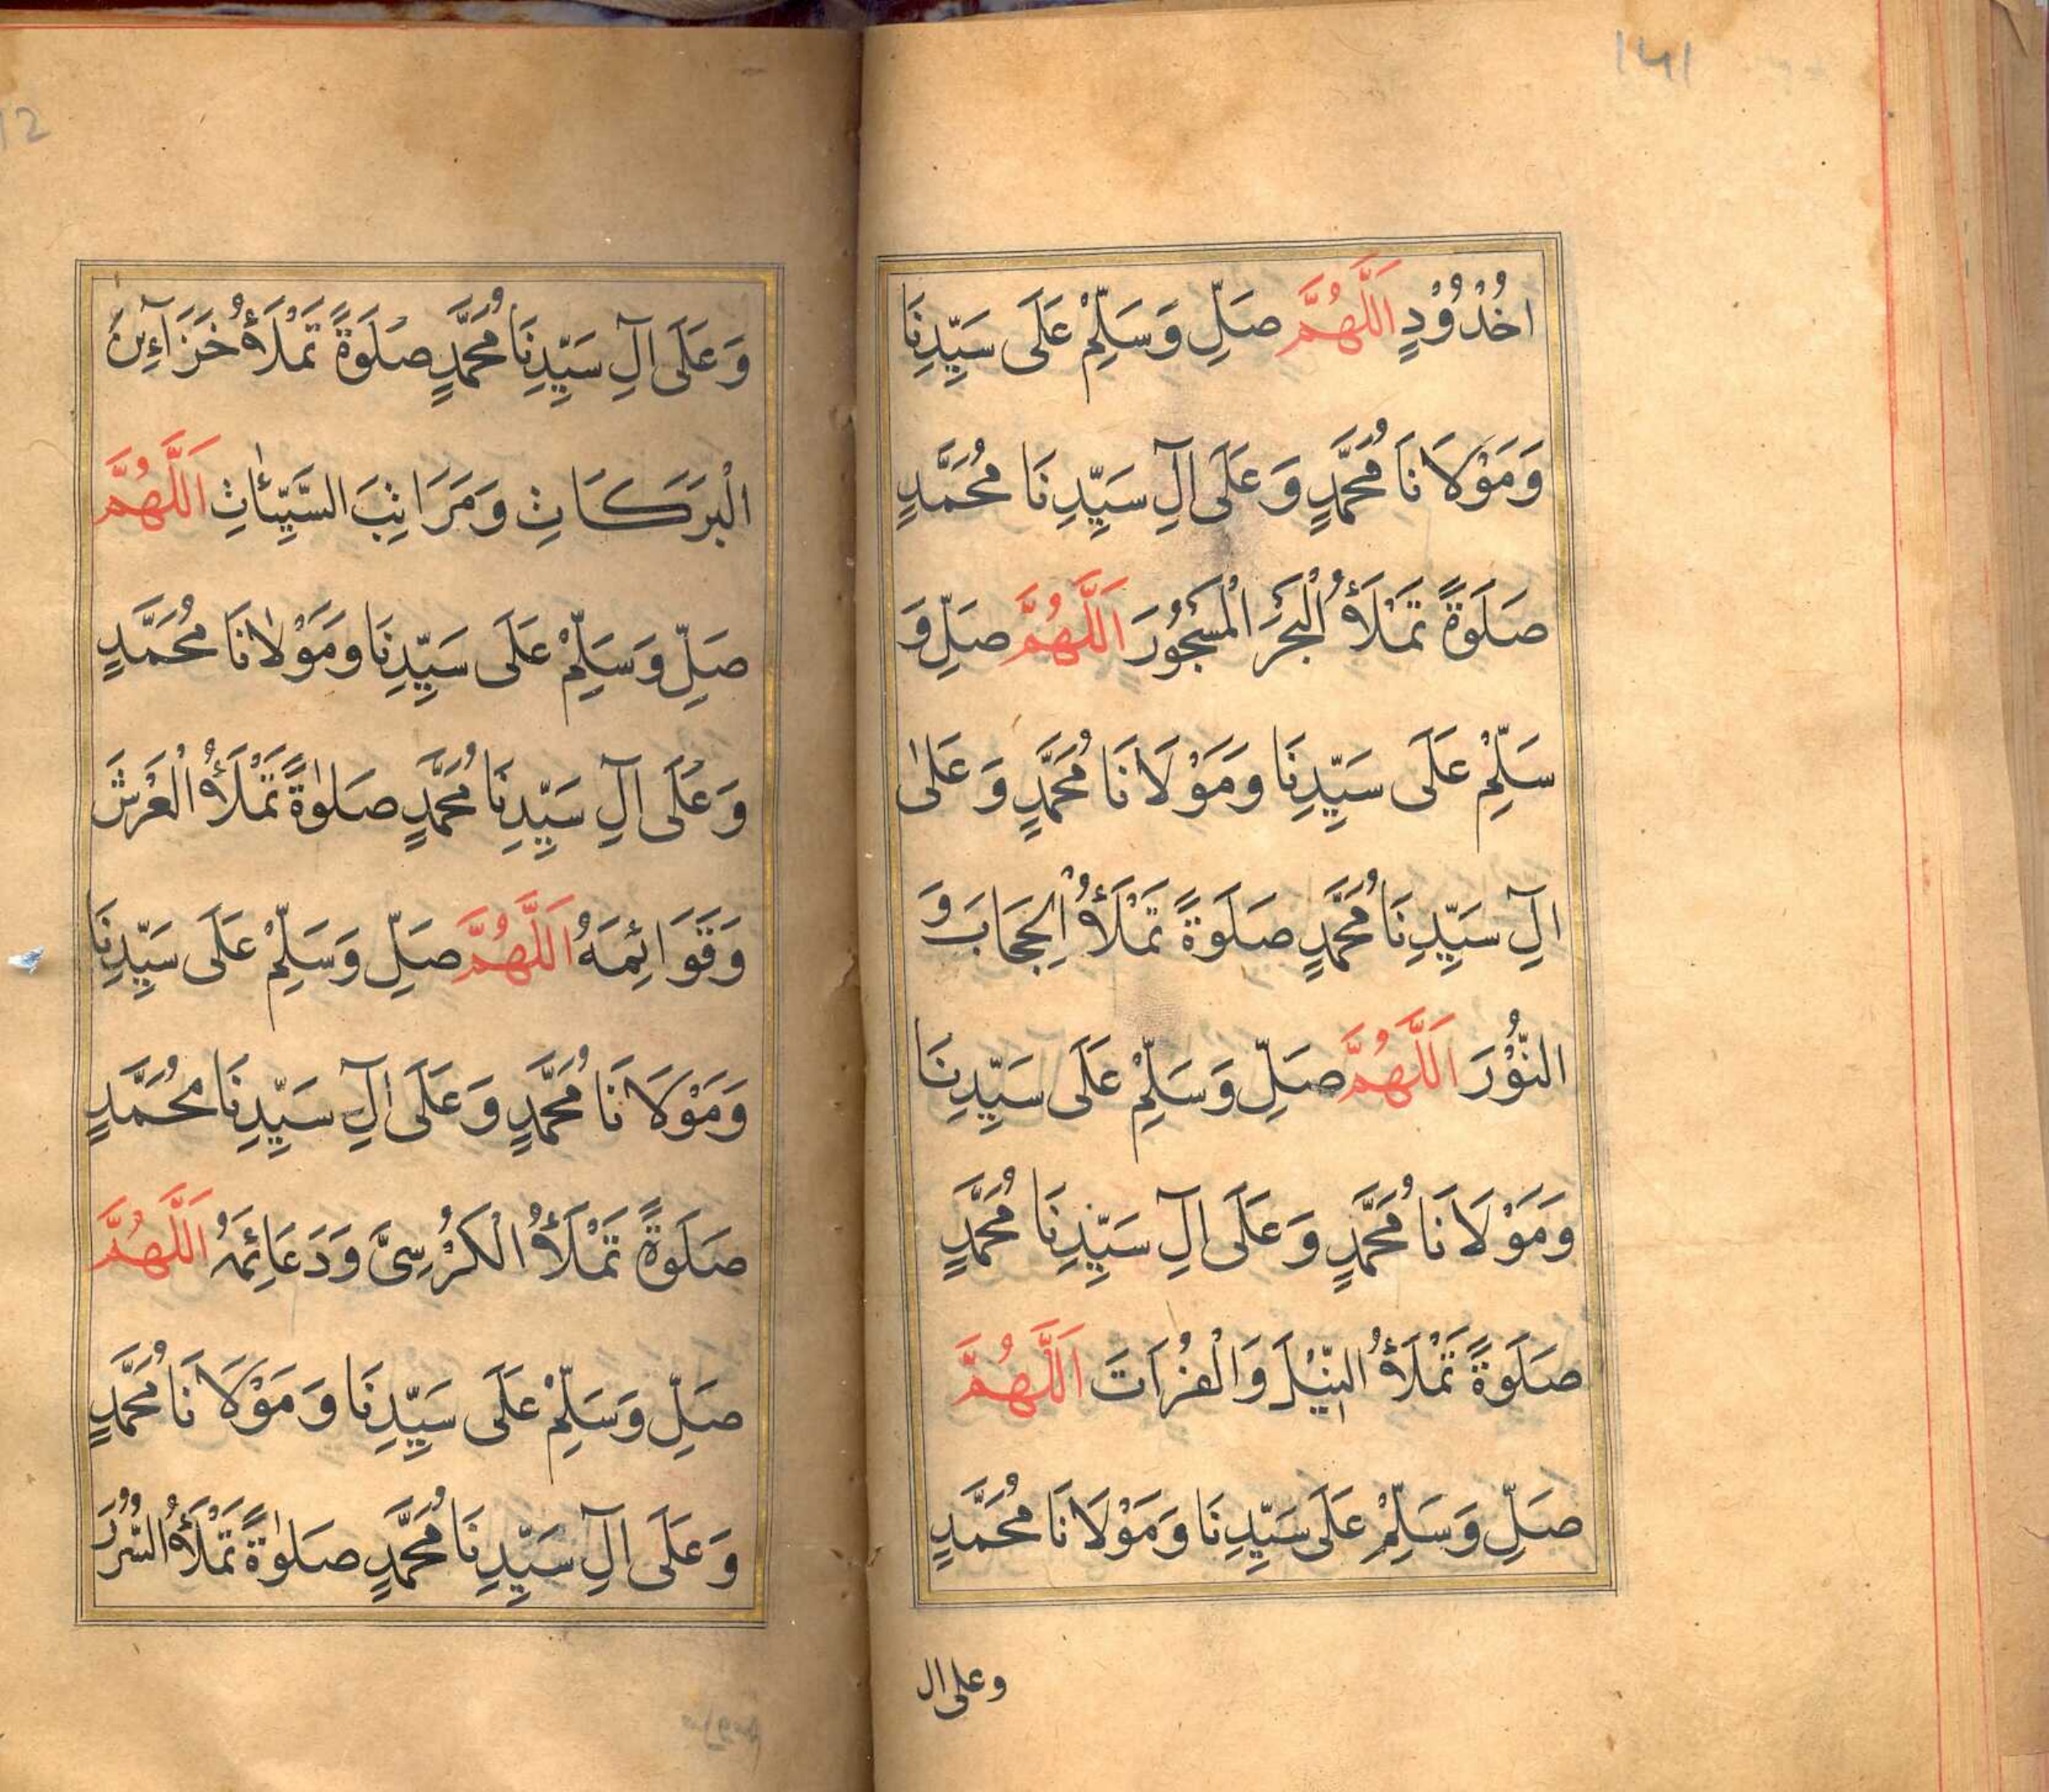 ١٤١
اخُدُوْدٍ اَللّٰهُمَّ صَلِّ وَسَلِّمْ عَلَى سَيِّدِنَا
وَمَوْلَانَا مُحَمَّدٍ وَعَلَى اٰلِ سَيِّدِنَا مُحَمَّدٍ
صَلَوةً تَمْلَأُ الْبَحْرَ الْمَسْجُورَ اَللّٰهُمَّ صَلِّ وَ
سَلِّمْ عَلَى سَيِّدِنَا وَمَوْلَانَا مُحَمَّدٍ وَعَلٰى
اٰلِ سَيِّدِنَا مُحَمَّدٍ صَلَوةً تَمْلَأُ الْحِجَابَ وَ
النُّوْرَ اَللّٰهُمَّ صَلِّ وَسَلِّمْ عَلَى سَيِّدِنَا
وَمَوْلَانَا مُحَمَّدٍ وَعَلَى اٰلِ سَيِّدِنَا مُحَمَّدٍ
صَلَوةً تَمْلَأُ النِّيْلَ وَالْفُرَاتَ اَللّٰهُمَّ
صَلِّ وَسَلِّمْ عَلَى سَيِّدِنَا وَمَوْلَانَا مُحَمَّدٍ
وعلى ال
وَعَلَى اٰلِ سَيِّدِنَا مُحَمَّدٍ صَلَوةً تَمْلَأُ خَزَآءِنَ
الْبَرَكَاتِ وَمَرَاتِبَ السَّيِّئَاتِ اَللّٰهُمَّ
صَلِّ وَسَلِّمْ عَلَى سَيِّدِنَا وَمَوْلَانَا مُحَمَّدٍ
وَعَلَى اٰلِ سَيِّدِنَا مُحَمَّدٍ صَلٰوةً تَمْلَأُ الْعَرْشَ
وَقَوَائِمَهُ اَللّٰهُمَّ صَلِّ وَسَلِّمْ عَلَى سَيِّدِنَا
وَمَوْلَانَا مُحَمَّدٍ وَعَلَى اٰلِ سَيِّدِنَا مُحَمَّدٍ
صَلَوةً تَمْلَأُ الْكُرْسِىَّ وَدَعَائِمَهُ اَللّٰهُمَّ
صَلِّ وَسَلِّمْ عَلَى سَيِّدِنَا وَمَوْلَانَا مُحَمَّدٍ
وَعَلَى اٰلِ سَيِّدِنَا مُحَمَّدٍ صَلٰوةً تَمْلَأُ السُّرُرَ